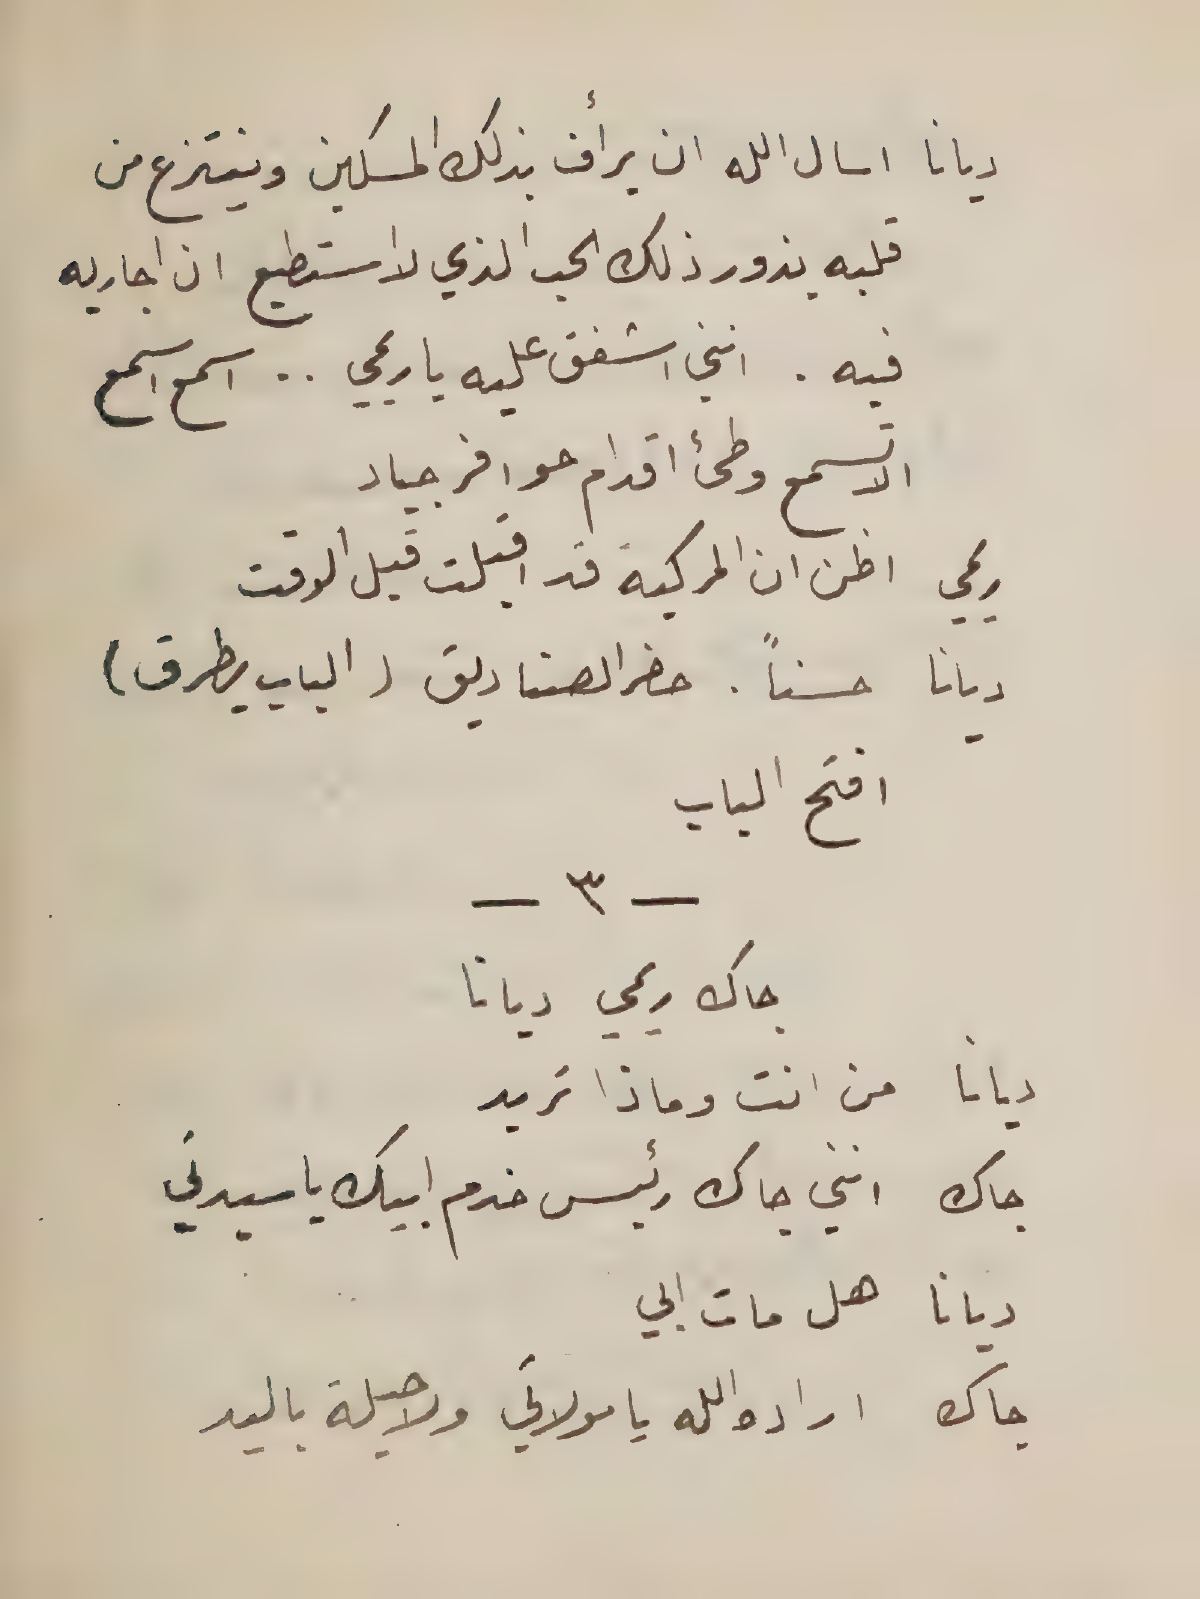 ديانا اسال الله ان يرأف بذلك المسكين وينتزع من
قلبه بذور ذلك الحب الذي لا استطيع ان اجاريه
فيه . انني اشفق عليه يا ريمي .. اسمع اسمع
الا تسمع وطئ اقدام حوافر جياد
ريمي اظن ان المركبة قد اقبلت قبل الوقت
ديانا حسناً . حضر الصناديق ( الباب يطرق )
افتح الباب
— ٣ —
جاك ريمي ديانا
ديانا من انت وماذا تريد
جاك انني جاك رئيس خدم ابيك يا سيدتي
ديانا هل مات ابي
جاك اراده الله يا مولاتي ولا حيلة باليد